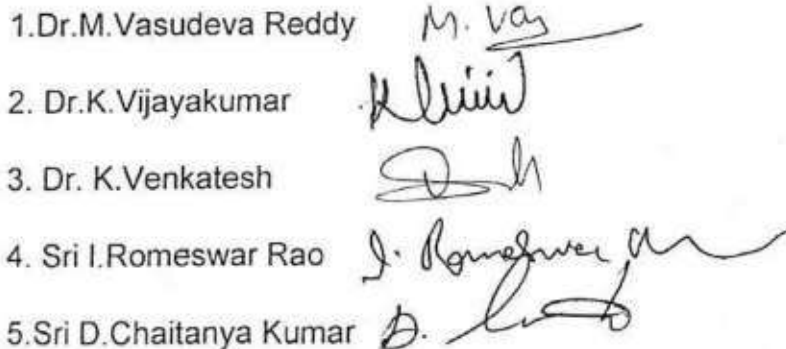 1.Dr.M.Vasudeva Reddy M. Vas
2. Dr.K.Vijayakumar
3. Dr. K.Venkatesh
4. Sri I.Romeswar Rao I. Romeswar
5.Sri D.Chaitanya Kumar D.